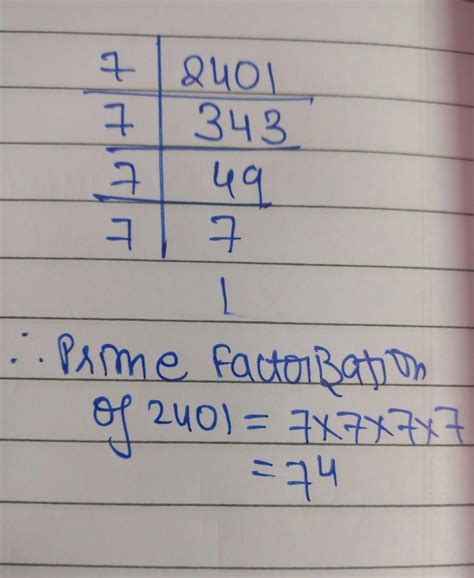 7 | 2401
7 | 343
7 | 49
7 | 7
1
∴ Prime Factorization
of 2401 = 7×7×7×7
= 7⁴